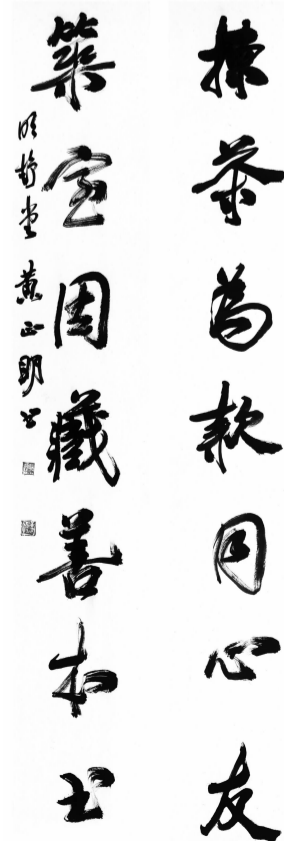 揀茶為款同心友
築室因藏善本書
明静堂 黄正明書